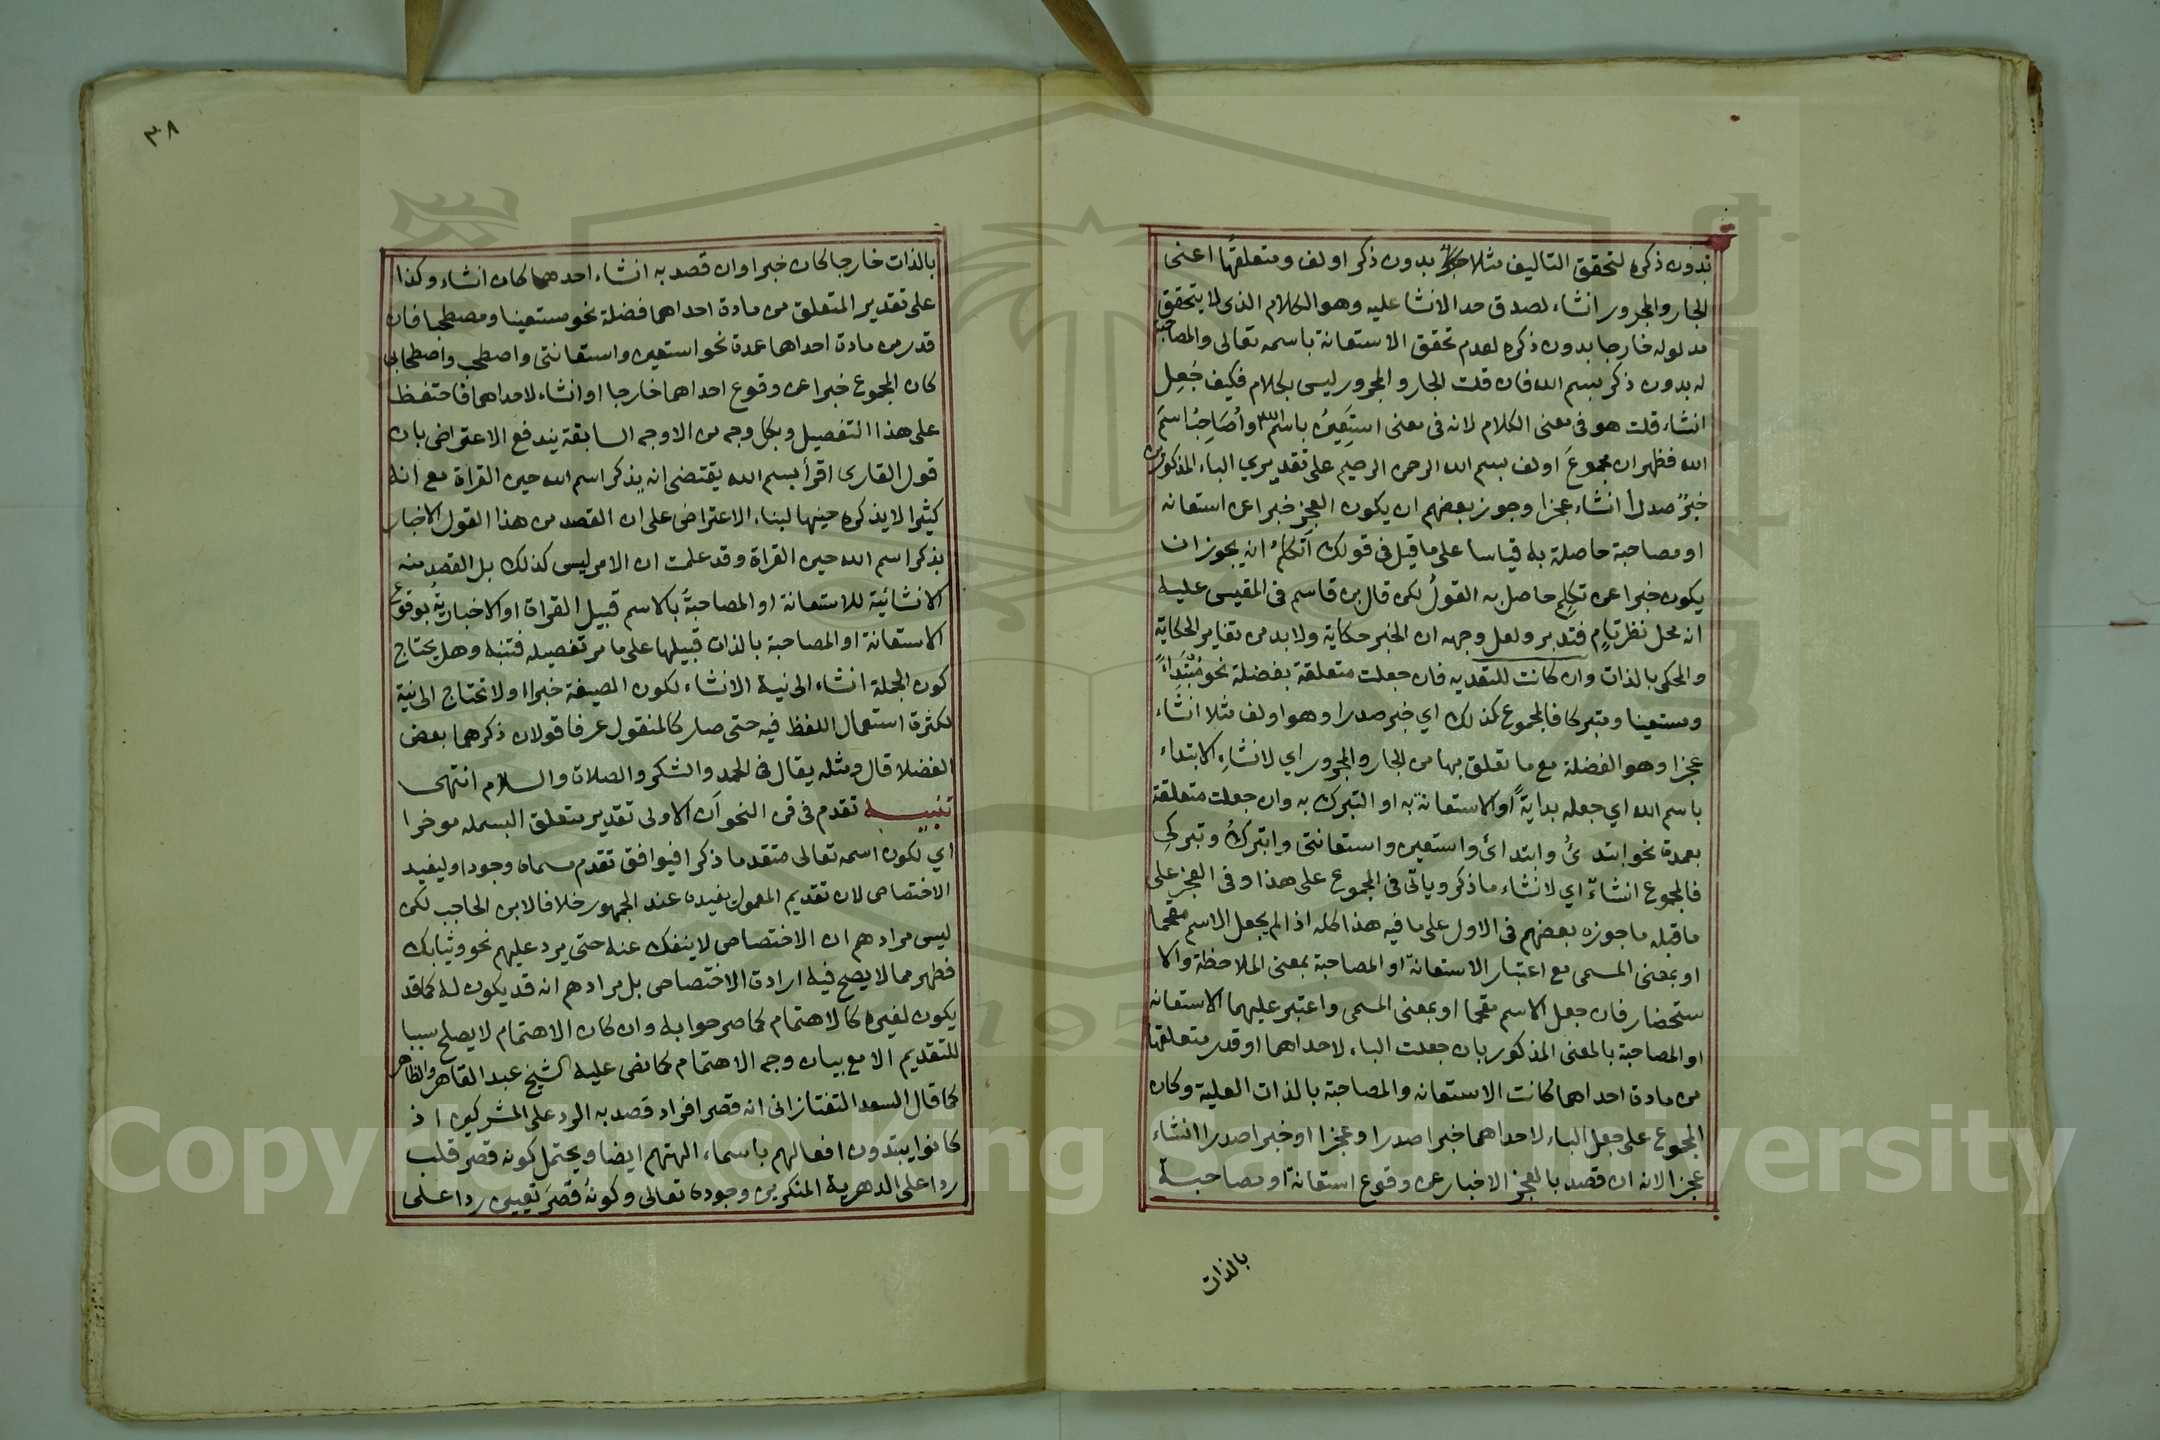 بدون ذكره لتحقق التاليف مثلا بدون ذكر اولف ومتعلقها اعنى
الجار والمجرور انشاء لصدق حد الانشا عليه وهو الكلام الذى لا يتحقق
مدلوله خارجا بدون ذكره لعدم تحقق الاستعانة باسمه تعالى والمصاحبة
له بدون ذكر بسم الله فان قلت الجار والمجرور ليس بكلام فكيف جُعِل
انشاء قلت هو فى معنى الكلام لانه فى معنى استَعِينُ باسم الله واُصَاحِبُ اسمَ
الله فظهر ان مجموعَ اولف بسم الله الرحمن الرحيم على تقديري الباء المذكورين
خبرٌ صدرا انشاء عجزا وجوز بعضهم ان يكون العجز خبرا عن استعانة
او مصاحبة حاصلة به قياسا على ما قيل فى قولك اَتكلمُ انه يجوز ان
يكون خبرا عن تكلمٍ حاصل به القولُ لكن قال بن قاسم فى المقيس عليه
انه محل نظر تام فتدبر ولعل وجهه ان الخبر حكاية ولا بد من تغاير الحكاية
والمحكى بالذات وان كانت للتعديه فان جعلت متعلقة بفضلة نحو مُبْتَدِاءً
ومستعينا ومتبركا فالمجموع كذلك اي خبر صدرا وهو اولف مثلا انشاء
عجزا وهو الفضلة مع ما تعلق بها من الجار والمجرور اي لانشاءِ الابتداء
باسم الله اي جعله بدايةً او الاستعانة به او التبرك به وان جعلت متعلقة
بعمدة نحو ابتدئُ وابتدائ واستعين واستعانتى واتبركُ وتبركى
فالمجموع انشاءٌ اي لانشاء ما ذكر وياتى فى المجموع على هذا وفى العجز على
ما قبله ما جوزه بعضهم فى الاول على ما فيه هذا كله اذا لم يجعل الاسم مقحما
او بمعنى المسمى مع اعتبار الاستعانة او المصاحبة بمعنى الملاحظة والا
ستحضار فان جعل الاسم مقحما او بمعنى المسمى واعتبر عليهما الاستعانه
او المصاحبة بالمعنى المذكور بان جعلت الباء لاحداهما او قدر متعلقها
من مادة احداهما كانت الاستعانه والمصاحبة بالذات العلية وكان
المجموع على جعل الباء لاحداهما خبرا صدرا وعجزا او خبرا صدرا انشاء
عجزا لانه ان قصد بالعجز الاخبار عن وقوع استعانة او مصاحبة
بالذات
٣٨
بالذات خارجا كان خبرا وان قصد به انشاء احدهما كان انشاء وكذا
على تقدير المتعلق من مادة احداهما فضلة نحو مستعينا ومصطحبا فان
قدر من مادة احداهما عمدة نحو استعين واستعانتى واصطحب واصطحابى
كان المجموع خبرا عن وقوع احداهما خارجا او انشاء لاحداهما فاحتفظ
على هذا التفصيل وبكل وجه من الاوجه السابقة يندفع الاعتراض بان
قول القارى اقرأ بسم الله يقتضى انه يذكر اسم الله حين القراة مع انه
كثيرا لا يذكره حينها لبناء الاعتراض على ان القصد من هذا القول الاخبار
بذكر اسم الله حين القراة وقد علمت ان الامر ليس كذلك بل القصد منه
الانشائية للاستعانة او المصاحبة بالاسم قبيل القراة او الاخبارية بوقوع
الاستعانة او المصاحبة بالذات قبيلها على ما مر تفصيله فتنبه وهل يحتاج
كون الجملة انشاء الى نية الانشاء لكون الصيغة خبرا اولا تحتاج الى نية
لكثرة استعمال اللفظ فيه حتى صار كالمنقول عرفا قولان ذكرهما بعض
الفضلا قال ومثله يقال فى الحمد والشكر والصلاة والسلام انتهى
تنبيه تقدم فى فن النحو اَن الاولى تقدير متعلق البسمله موخرا
اي لكون اسمه تعالى متقدما ذكرا فيوافق تقدم مسماه وجودا وليفيد
الاختصاص لان تقديم المعمول يفيده عند الجمهور خلافا لابن الحاجب لكن
ليس مرادهم ان الاختصاص لا ينفك عنه حتى يرد عليهم نحو وثيابك
فطهر مما لا يصح فيه ارادة الاختصاص بل مرادهم انه قد يكون له كما قد
يكون لغيره كالاهتمام كما صرحوا به وان كان الاهتمام لا يصلح سببا
للتقديم الا مع بيان وجه الاهتمام كما نص عليه الشيخ عبد القاهر والظاهر
كما قال السعد التفتازانى انه قصر افراد قصد به الرد على المشركين اذ
كانوا يبتدون افعالهم باسماء الهتهم ايضا ويحتمل كونه قصر قلب
ردا على الدهرية المنكرين وجوده تعالى وكونه قصرَ تعيين ردا على
Copyright © King Saud University
1957